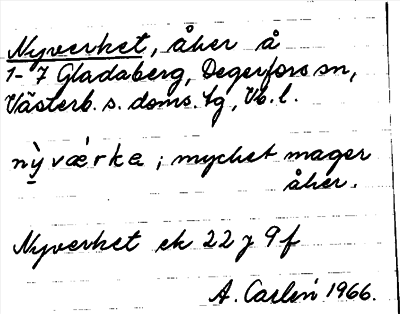 Nyverket, åker å
1-7 Gladaberg, Degerfors sn,
Västerb. s. doms. tg, Vb. l.
nỳvǽrka; mycket mager
åker.
Nyverket ek 22 J 9 f
A. Carlén 1966.